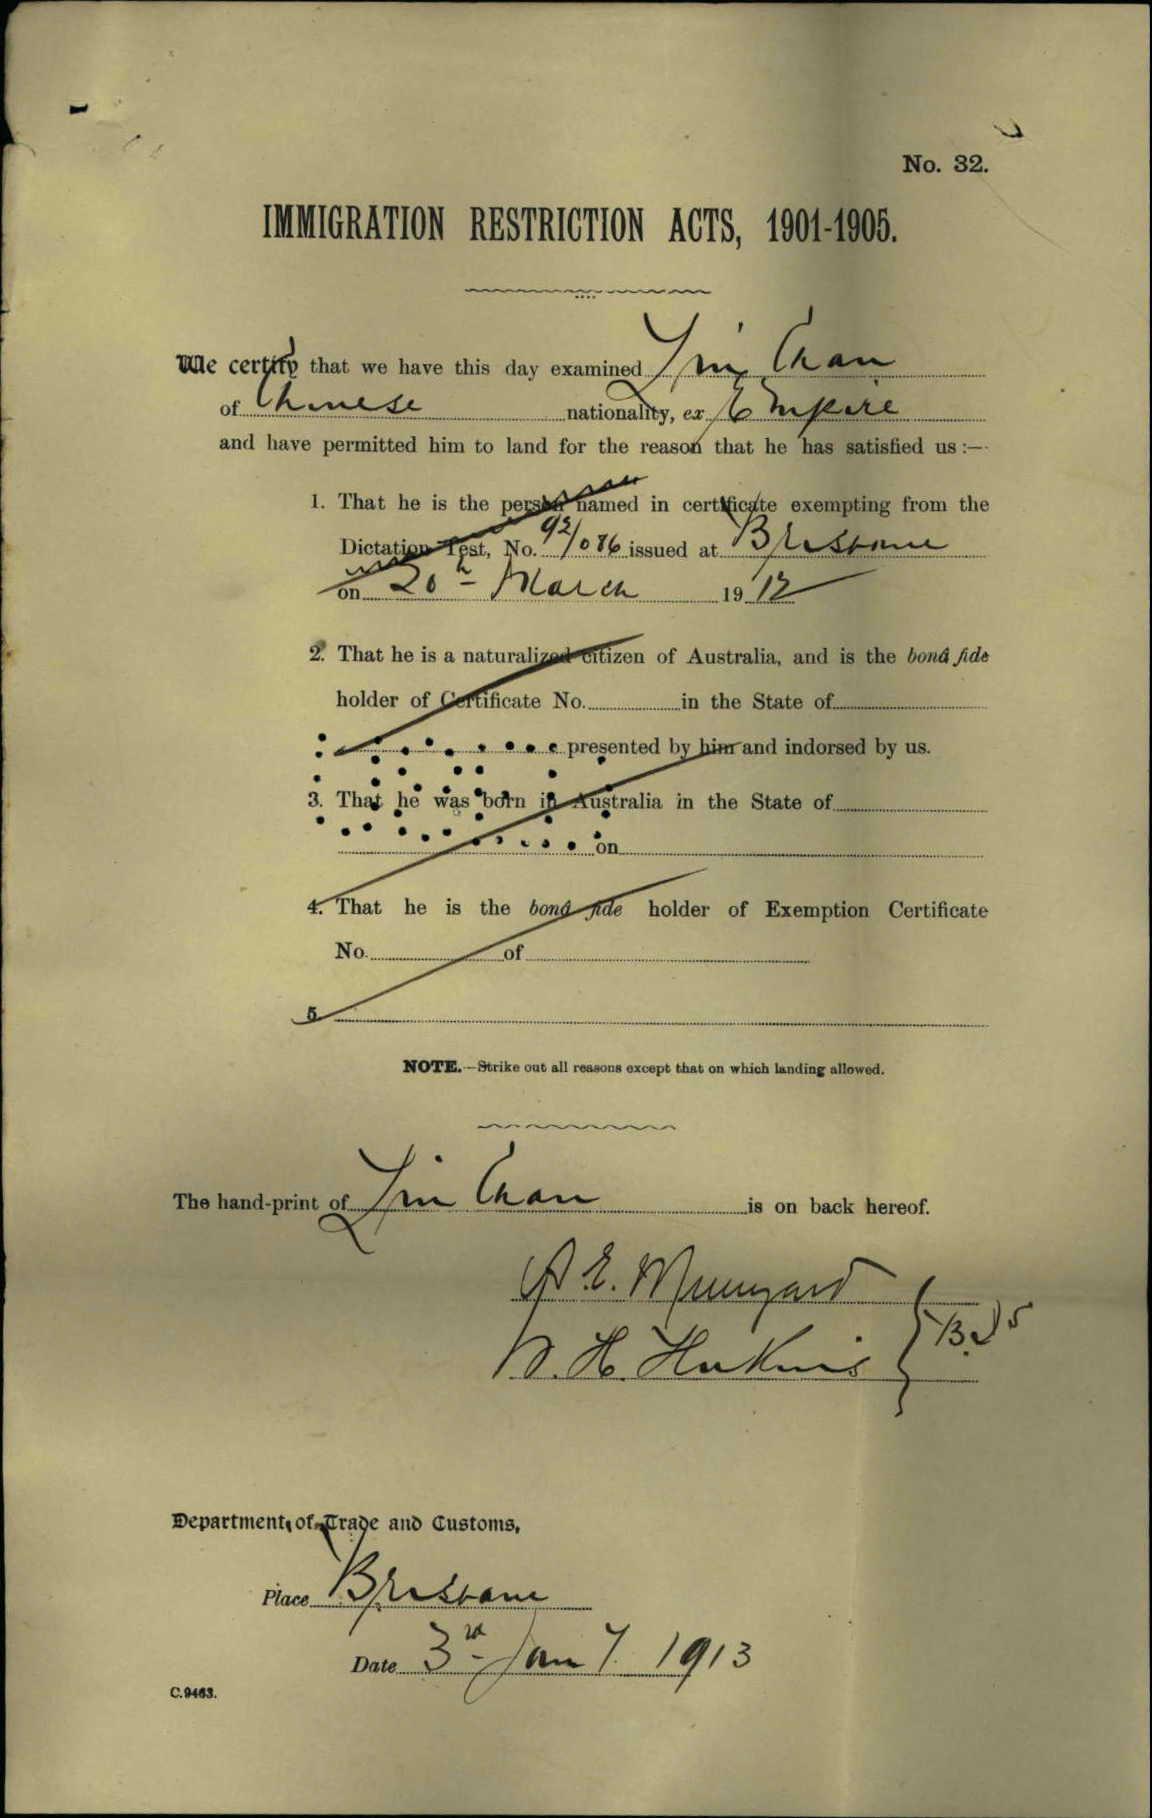 No. 32.
IMMIGRATION RESTRICTION ACTS, 1901-1905.
We certify that we have this day examined Lin Chan
of Chinese nationality, ex Empire
and have permitted him to land for the reason that he has satisfied us :—
1. That he is the person named in certificate exempting from the
Dictation Test, No. 92/086 issued at Brisbane
on 20th March 1912
2. That he is a naturalized citizen of Australia, and is the bonâ fide
holder of Certificate No. in the State of
presented by him and indorsed by us.
3. That he was born in Australia in the State of
on
4. That he is the bonâ fide holder of Exemption Certificate
No. of
5.
NOTE.—Strike out all reasons except that on which landing allowed.
The hand-print of Lin Chan is on back hereof.
A. E.
H.
Department of Trade and Customs,
Place Brisbane
Date 3rd Jany 1913
C.9463.